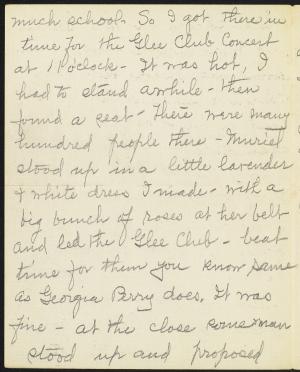 much school. So I got there in
time for the Glee Club Concert
at 11 o'clock - It was hot, I
had to stand awhile - then
found a seat - There were many
hundred people there - Muriel
stood up in a little lavender
& white dress I made - with a
big bunch of roses at her belt
and led the Glee Club - beat
time for them you know same
as Georgia Perry does. It was
fine - at the close some man
stood up and proposed